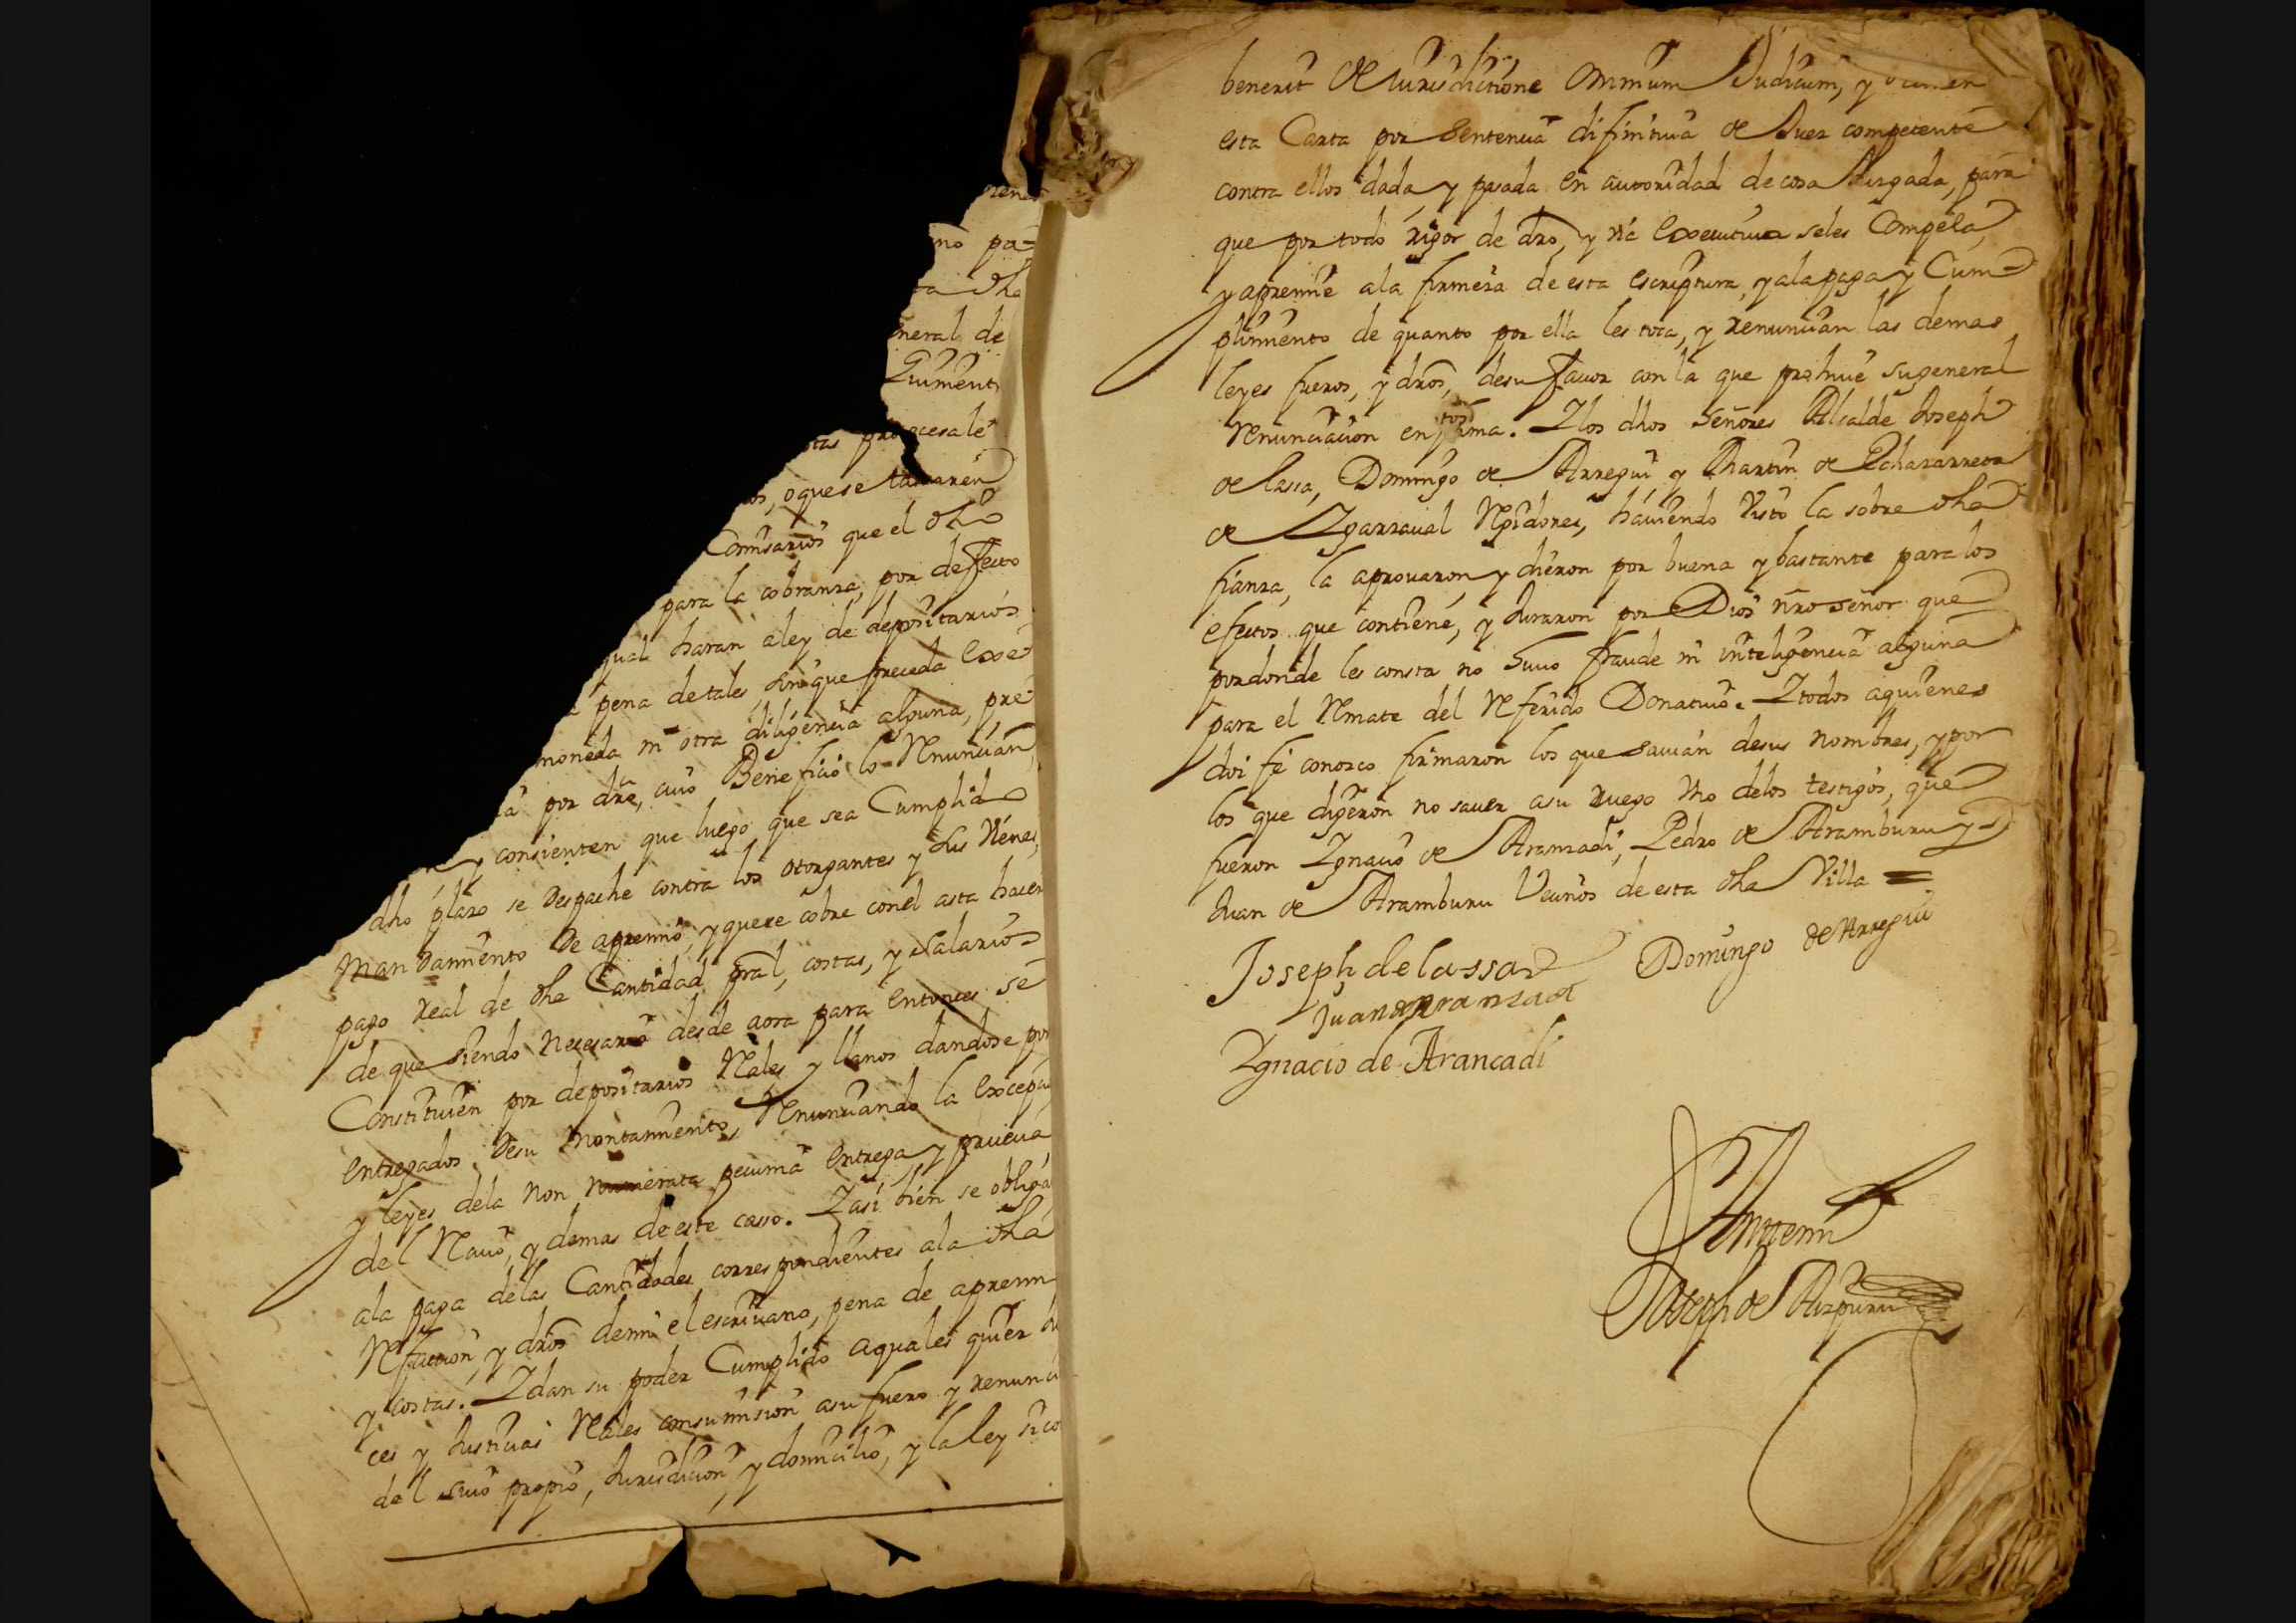 no pa-
ta dha
neral de
Quiment
stas procesale
os, o que se tasaren
Comisarios que el dho
para la cobranza, por defecto
qual haran a ley de depositarios
pena de tales, sin que preceda Exe-
moneda ni otra diligencia alguna, pre-
por dre, cuio Beneficio lo Renuncian
y consienten que luego que sea Cumplido
dho plazo se Despache contra los otorgantes y sus vienes,
Mandamiento de apremio, y que se cobre con el asta hacer
pago Real de dha Cantidad pral, costas, y salarios
de que siendo Necesario desde aora para entonces se
Constituien por depositarios Rales y llanos dandose por
entregados desu Montamiento, Renunciando la Excepcio
y leyes dela non numerata pecunia entrega y prueva
del Reciuo, y demas de este caso. Y asi bien se obliga
ala paga delas Cantidades correspondientes ala dha
Refaccion, y dros demi el escriuano, pena de apremi
y costas. Y dan su poder Cumplido aquales quier Ju
ces y Justicias Rales con sumision asu fuero y renunci
del suio propio, Jurisdicion, y domicilio, y la ley si co
benerit de Jurisdictione Omnium Judicum, y
esta Carta por Sentencia difinitiua de Juez competente
contra ellos dada, y pasada en autoridad de cosa Juzgada, para
que por todo rigor de dro, y via Executiua seles Compela,
y apremie ala firmeza de esta escriptura, y ala paga y Cum-
plimiento de quanto por ella les toca, y renuncian las demas
leyes fueros, y dros, desu fauor con la que prohiue su general
Renunciacion en forma. Y los dhos Señores Alcalde Joseph
de lassa, Domingo de Arregui y Martin de Echazarreta
de Ygarzaual Rexidores, hauiendo Visto la sobre dha
fianza, la aprouaron, y dieron por buena y bastante para los
efectos que contiene, y Juraron por Dios nro señor que
por donde les consta no huuo fraude ni inteligencia alguna
para el Remate del Referido Donatiuo. Y todos aquienes
doi fe conozco firmaron los que sauian desus nombres, y por
los que digeron no sauer asu ruego Vno delos testigos, que
fueron Ygnacio de Aranzadi, Pedro de Aramburu y
Juan de Aramburu Vecinos de esta dha Villa =
Joseph de lassa Domingo de Arregui
Juan de aranzadi
Ygnacio de Arancadi
Antemi
Joseph de Aizpuru